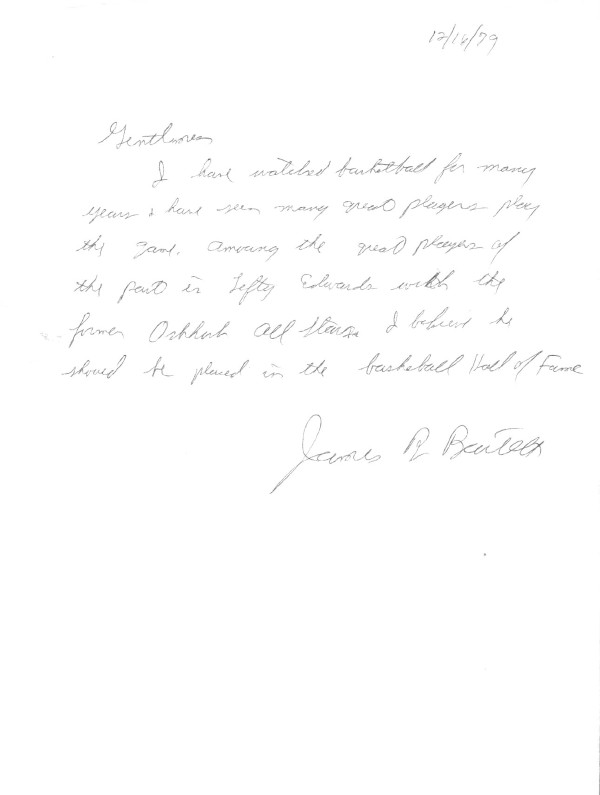 12/16/79
Gentlemen
I have watched basketball for many
years & have seen many great players play
the game. Amoung the great players of
the past is Lefty Edwards with the
former Oshkosh All Stars. I believe he
should be placed in the basketball Hall of Fame
James R Bartelt